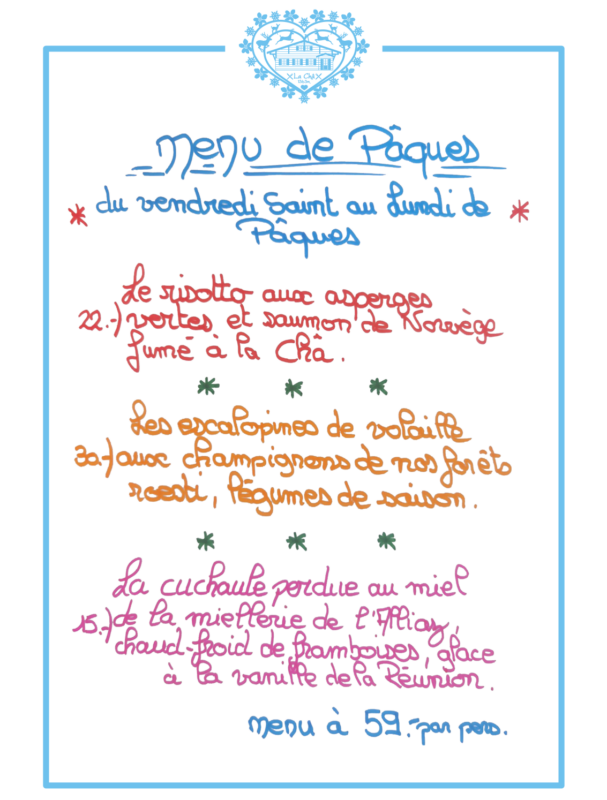 Le Châ
Menu de Pâques
* du vendredi Saint au Lundi de *
Pâques
Le risotto aux asperges
22.-) vertes et saumon de Norvège
fumé à la Châ.
* * *
Les escalopines de volaille
30.-) aux champignons de nos forêts
roesti, légumes de saison.
* * *
La cuchaule perdue au miel
15.-) de la miellerie de l'Alliaz,
chaud-froid de framboises, glace
à la vanille de la Réunion.
menu à 59.- par pers.